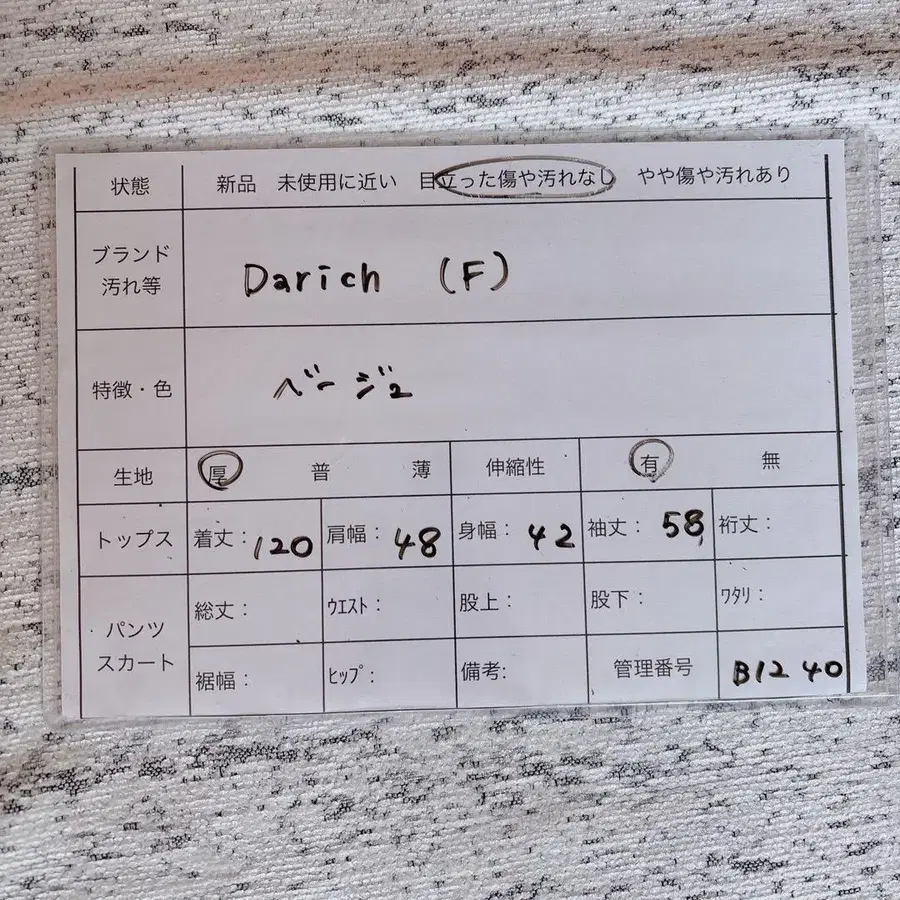 状態 新品 未使用に近い 目立った傷や汚れなし やや傷や汚れあり
ブランド
汚れ等
Darich (F)
特徴・色 ベージュ
生地 厚 普 薄 伸縮性 有 無
トップス 着丈: 120 肩幅: 48 身幅: 42 袖丈: 58 裄丈:
パンツ
スカート
総丈: ウエスト: 股上: 股下: ワタリ:
裾幅: ヒップ: 備考: 管理番号 B1240